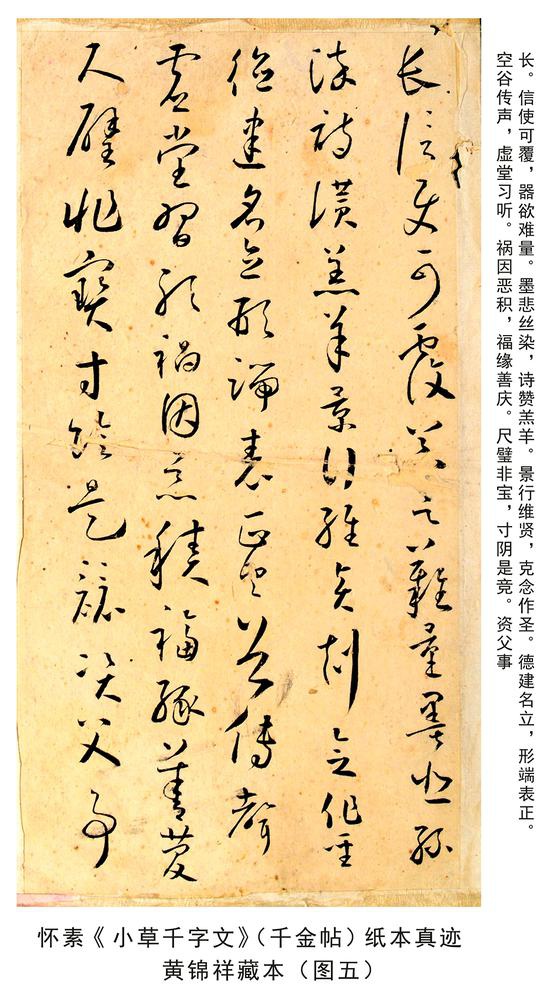 长。信使可覆，器欲难量。墨悲丝染，诗赞羔羊。景行维贤，克念作圣。德建名立，形端表正。
空谷传声，虚堂习听。祸因恶积，福缘善庆。尺璧非宝，寸阴是竞。资父事
長信使可覆器欲難量墨悲絲
染詩讚羔羊景行維賢剋念作聖
德建名立形端表正空谷傳聲
虛堂習聽禍因惡積福緣善慶
尺璧非寶寸陰是競資父事
怀素《小草千字文》（千金帖）纸本真迹
黄锦祥藏本（图五）